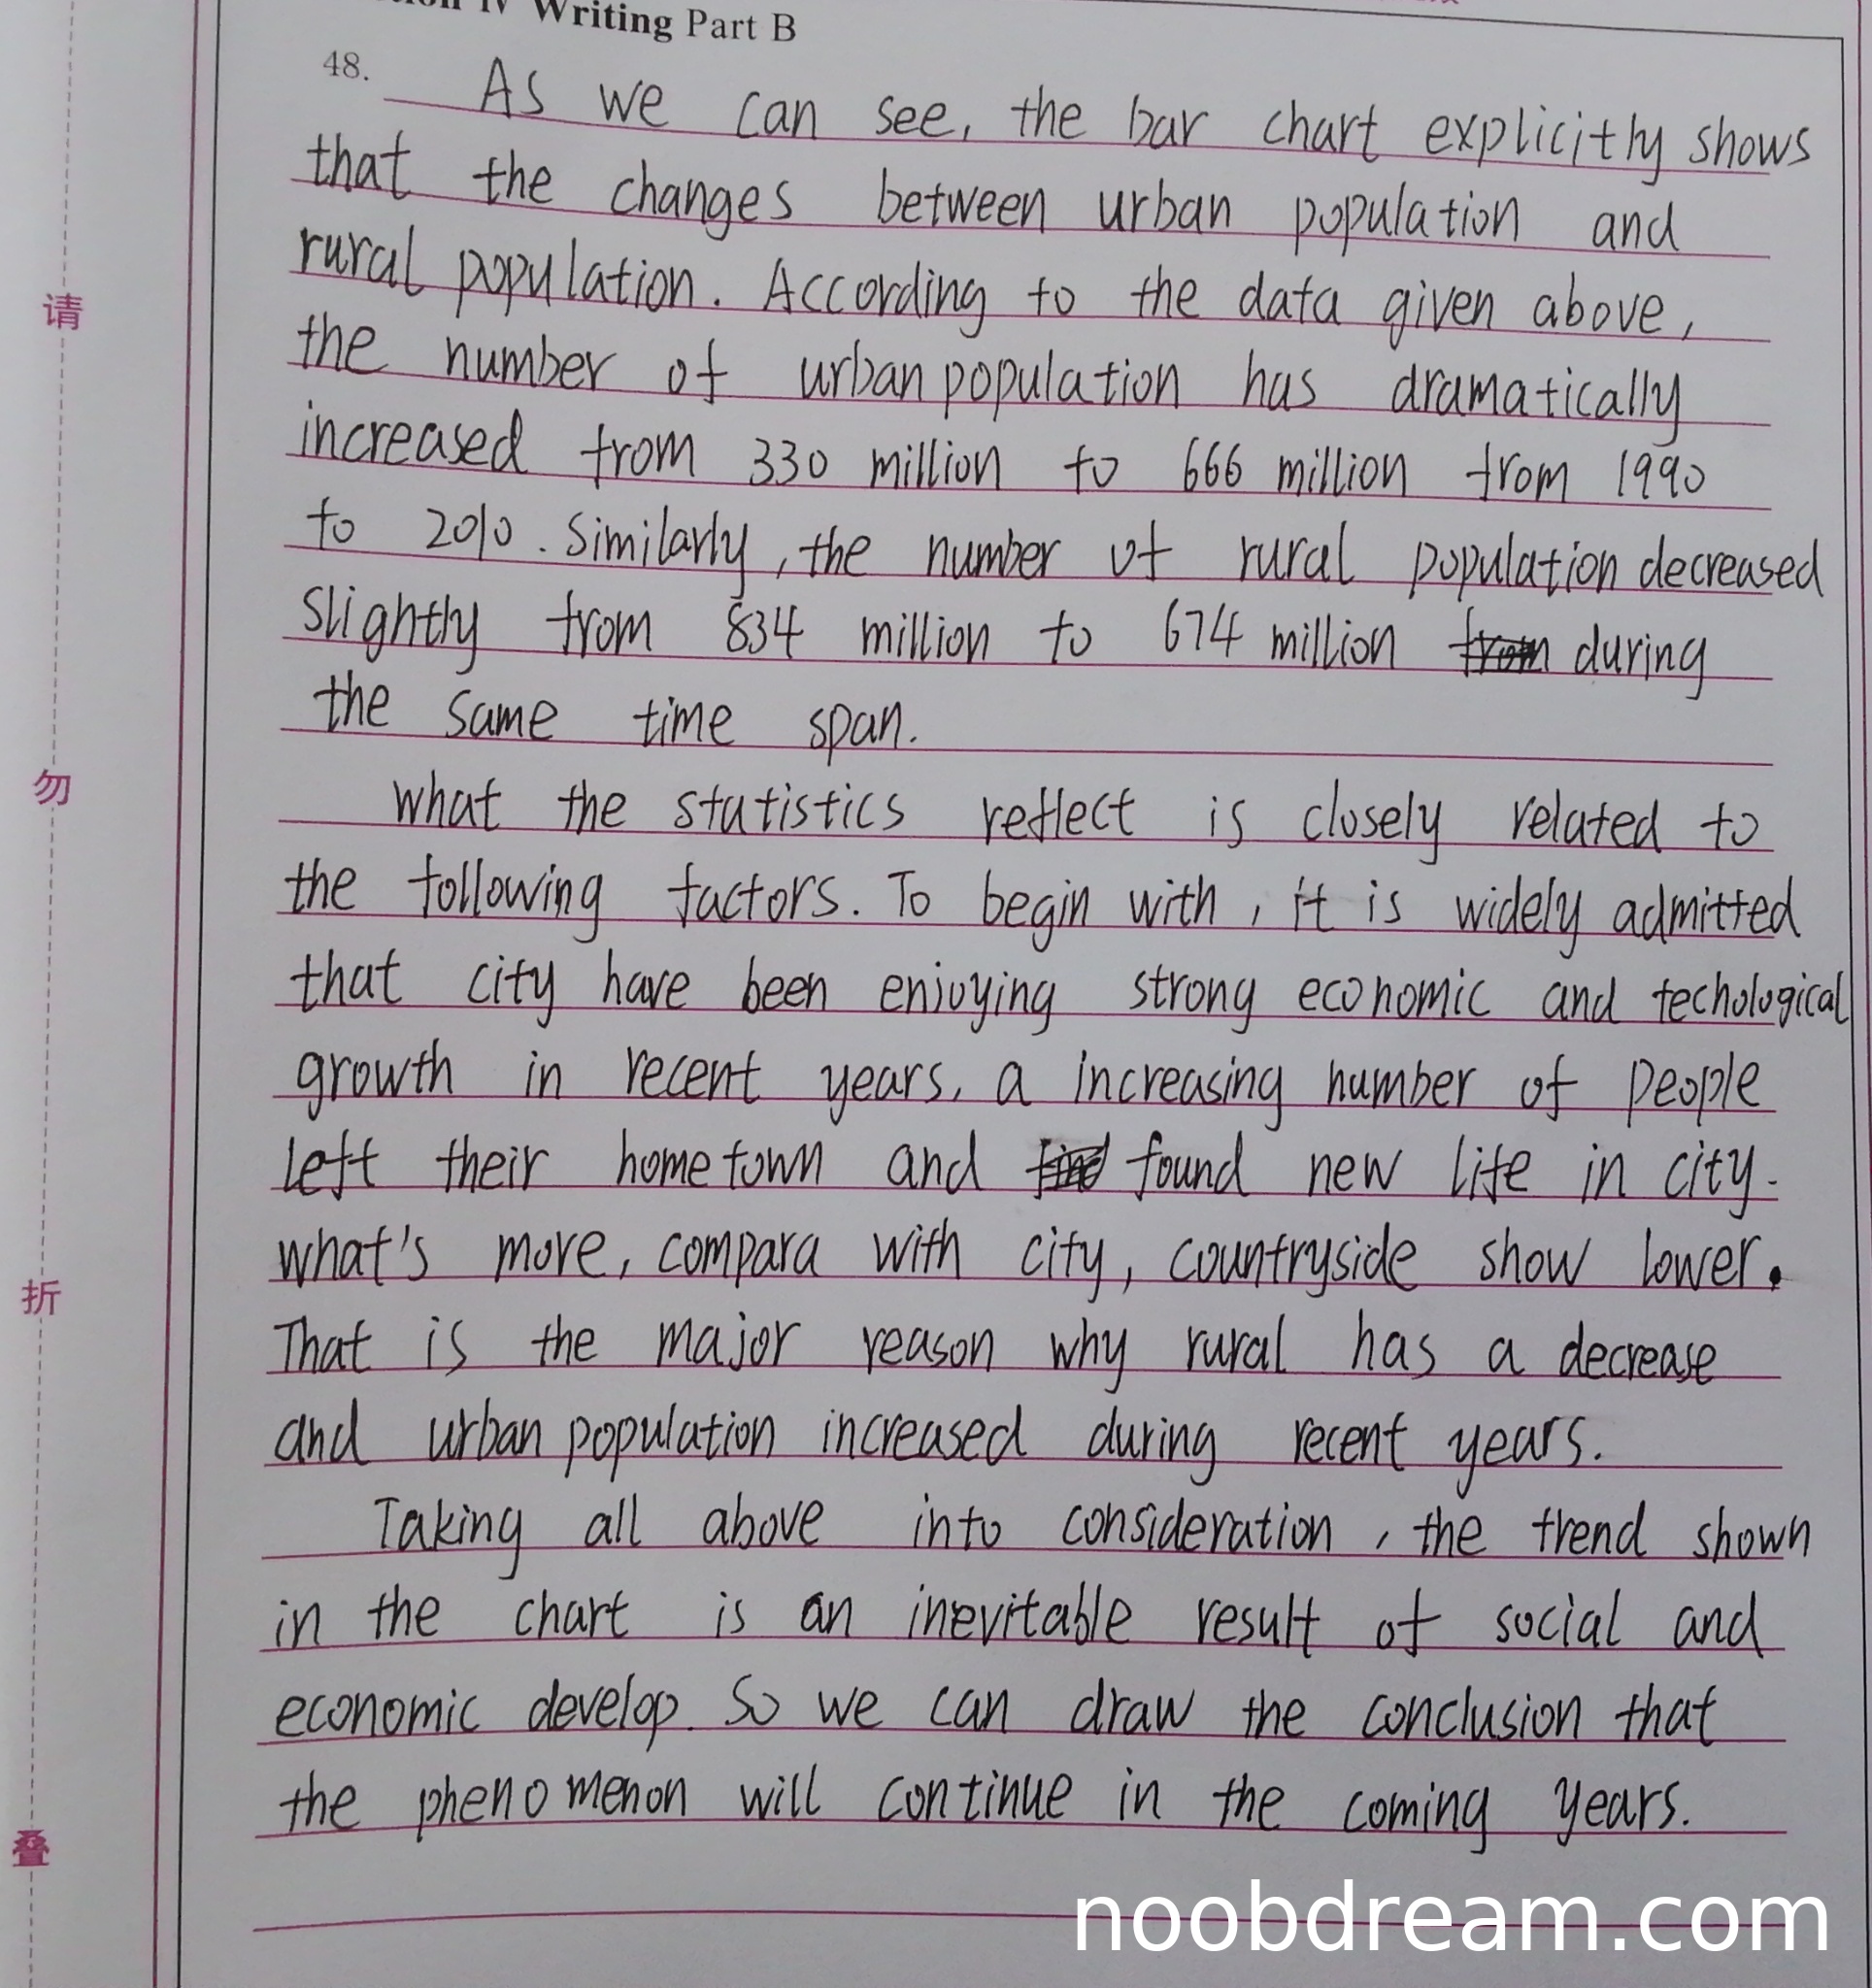 IV Writing Part B
48. As we can see, the bar chart explicitly shows
that the changes between urban population and
rural population. According to the data given above,
the number of urban population has dramatically
increased from 330 million to 666 million from 1990
to 2010. Similarly, the number of rural population decreased
slightly from 834 million to 674 million during
the same time span.
What the statistics reflect is closely related to
the following factors. To begin with, it is widely admitted
that city have been enjoying strong economic and techological
growth in recent years, a increasing number of people
left their hometown and found new life in city.
what's more, compara with city, countryside show lower.
That is the major reason why rural has a decrease
and urban population increased during recent years.
Taking all above into consideration, the trend shown
in the chart is an inevitable result of social and
economic develop. So we can draw the conclusion that
the phenomenon will continue in the coming years.
请
勿
折
叠
noobdream.com